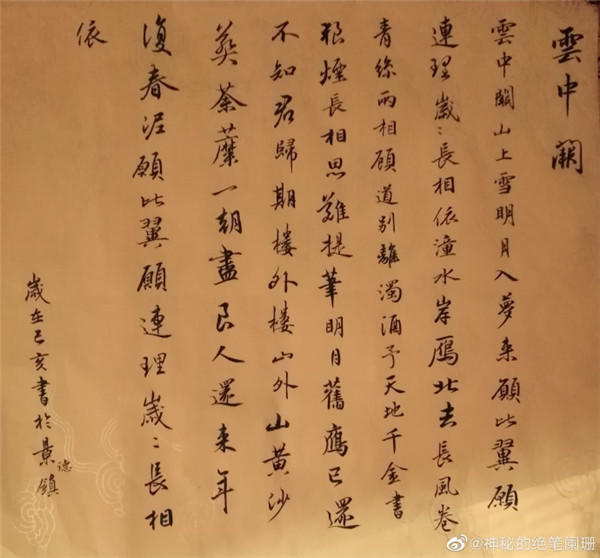 雲中闕
雲中闕山上雪明月入夢來願比翼願
連理歲〻長相依潼水岸鴈北去長風卷
青絲兩相顧道別離濁酒予天地千金書
狼煙長相思難提筆明月舊鷹已還
不知君歸期樓外樓山外山黃沙
葬荼蘼一朝盡良人還來年
復春泥願比翼願連理歲〻長相
依
歲在己亥書於景德鎮
@神秘的绝笔阑珊